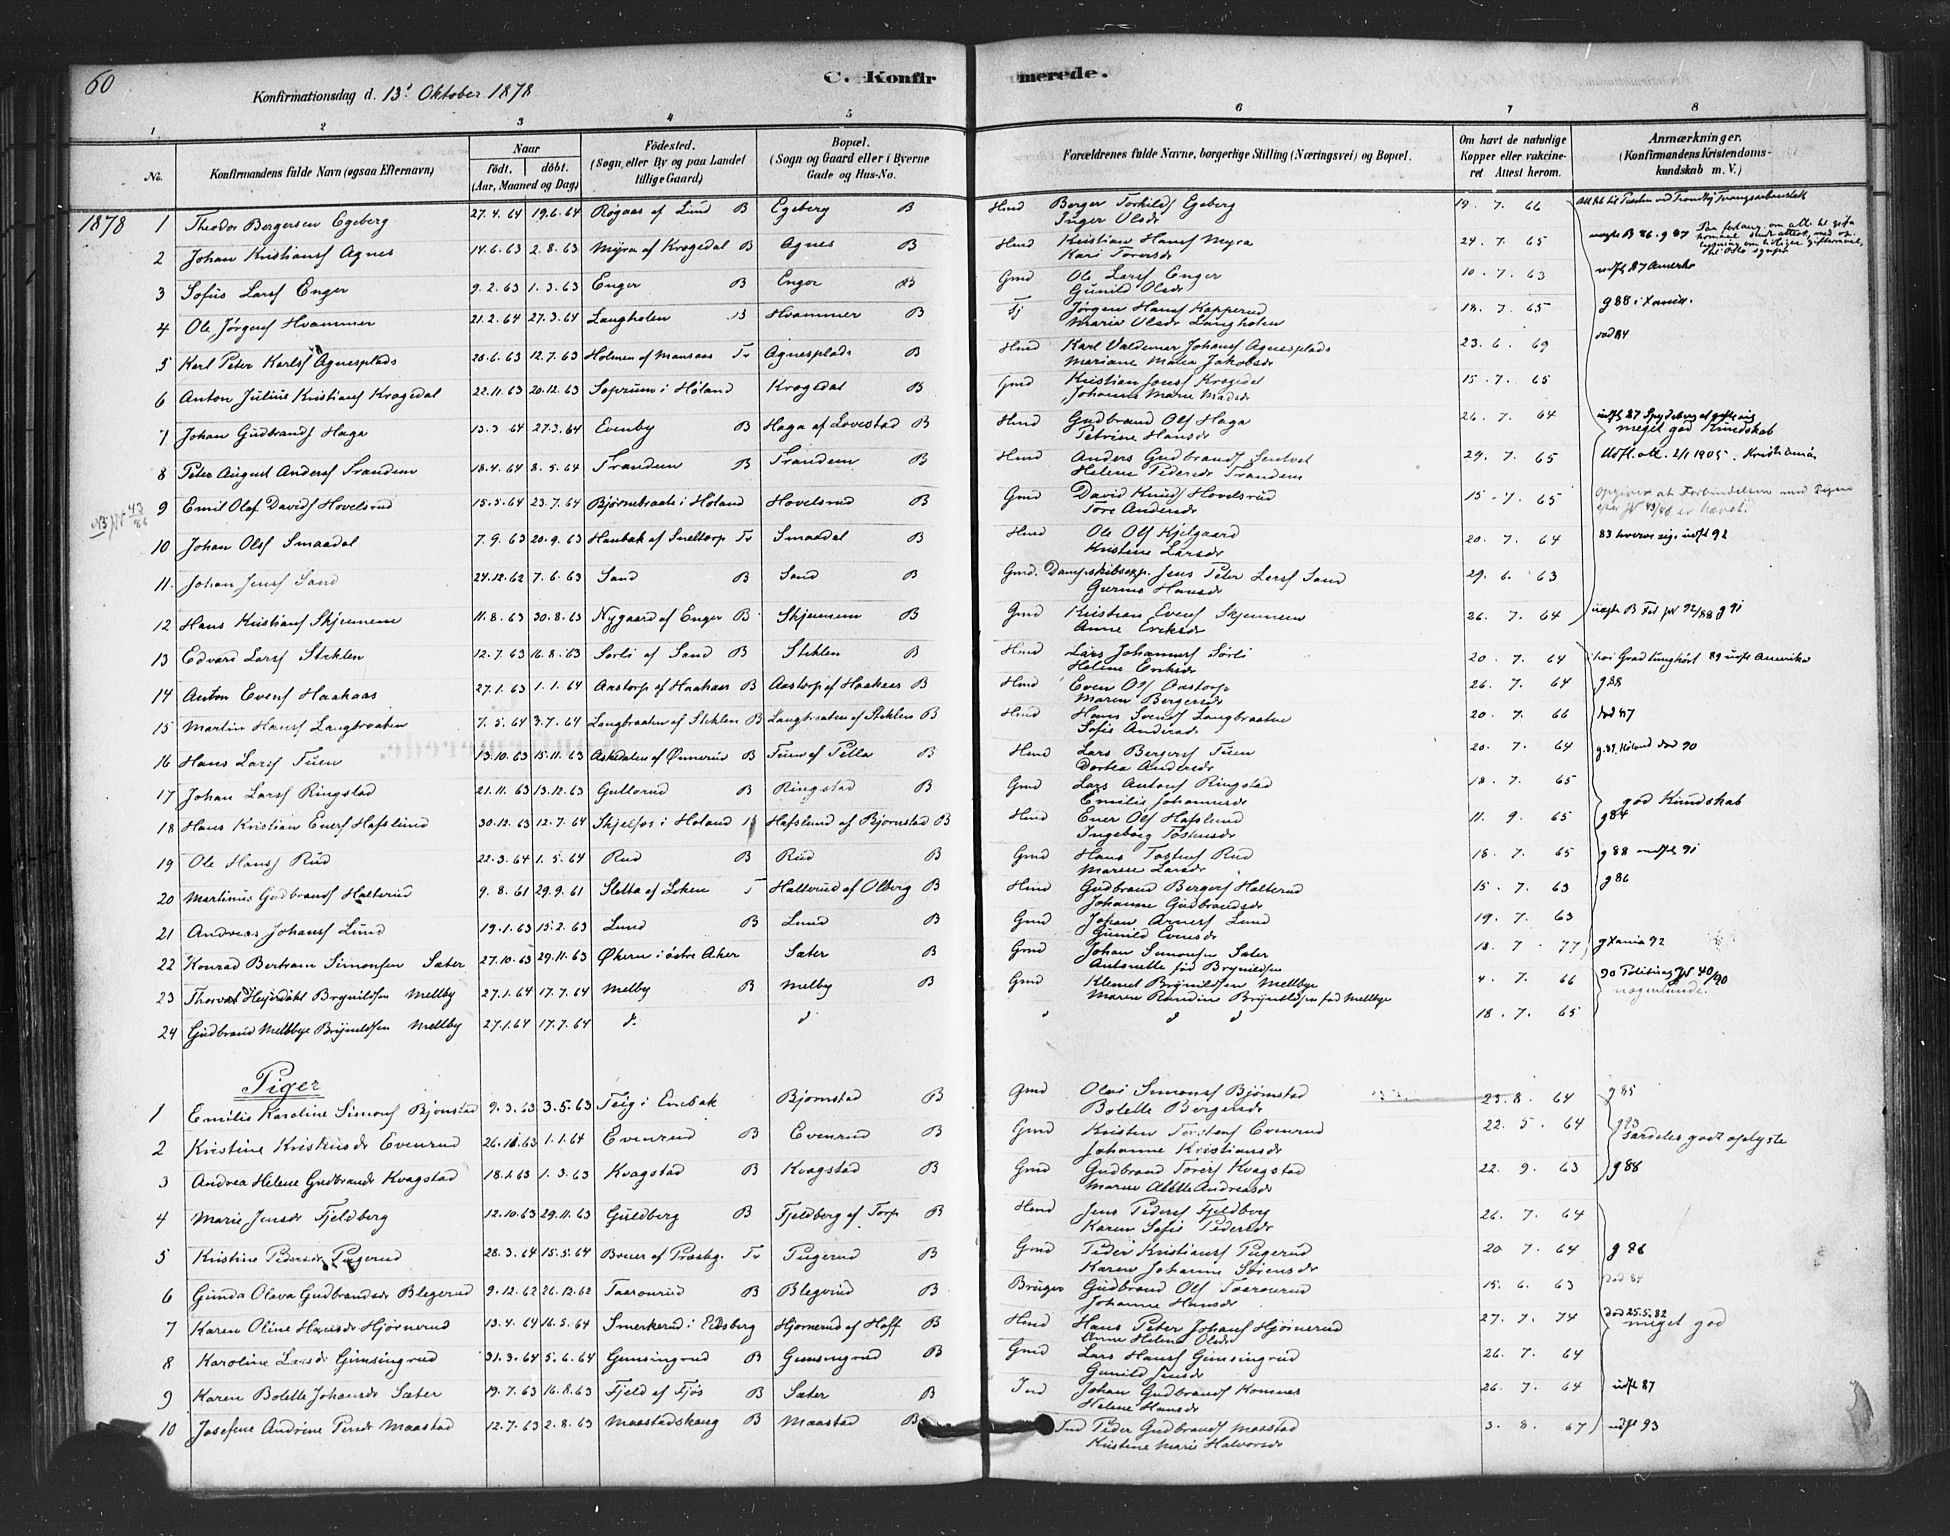 60
C. Konfirmerede.
Konfirmationsdag d. 13' Oktober 1878
1 2 3 4 5 6 7 8
No. Konfirmandens fulde Navn (ogsaa Efternavn) Naar født. døbt. (Aar, Maaned og Dag) Fødested. (Sogn, eller By og paa Landet tillige Gaard) Bopæl. (Sogn og Gaard eller i Byerne Gade og Hus-No. Forældrenes fulde Navne, borgerlige Stilling (Næringsvei) og Bopæl. Om havt de naturlige Kopper eller vakcineret Attest herom. Anmærkninger. (Konfirmandens Kristendomskundskab m. V.)
1878 1 Theodor Bergersen Egeberg 27.4.64 19.6.64 Røgaas af Lund B Egeberg B Hmd Berger Torkilds Egeberg 19. 7. 66
Inger Olsdr
2 Johan Kristians Agnes 14.6.63 2.8.63 Myra af Krogedal B Agnes B Hmd Kristian Hans Myra 24. 7. 65
Kari Torersdr
3 Sofus Lars Enger 9.2.63 1.3.63 Enger B Enger B Gmd Ole Lars Enger 10. 7. 63 udfl 87 Amerka
Gunild Olsdr
4 Ole Jørgens Hvammer 21.2.64 27.3.64 Langholen B Hvammer B Tj Jørgen Hans Kapperud 18. 7. 65 g 88 i Xania.
Maria Olsdr Langholen
5 Karl Peter Karls Agnesplads 20.6.63 12.7.63 Holmen af Mansaas Tr Agnesplads B Hmd Karl Valdemar Johans Agnesplads 23. 6. 69 død 84
Mariane Maria Jakobsdr
6 Anton Julius Kristians Krogedal 22.11.63 20.12.63 Soprum i Høland Krogedal B Gmd Kristian Jons Krogedal 15. 7. 65
Johanne Marie Madsdr
7 Johan Gudbrands Haga 13.3 64 27.3.64 Evenby B Haga af Lovestad B Hmd Gudbrand Ols Haga 26. 7. 64
Petrine Hansdr meget god Kundskab
8 Peter August Anders Trandem 18.4.64 8.5.64 Trandem B Trandem B Hmd Anders Gudbrands 29. 7. 65 Udfl. att. 2/1 1905. Kristiania
Helene Pedersdr Trandem
NB No 43/86 9 Emil Olaf Davids Hovelsrud 15.5.64 23.7.64 Bjørnebraate i Høland Hovelsrud B Gmd David Knuds Hovelsrud 15. 7. 65 Opgiver at Forbindelsen med Pigen
Tore Andersdr efter No 43/86 er hævet.
10 Johan Ols Smaadal 7.9.63 20.9.63 Haubak af Sneltorp Tr Smaadal B Hmd Ole Ols Kjelgaard 20. 7. 64
Kristine Larsdr
11. Johan Jens Sand 24.12.62 7.6.63 Sand B Sand B Gmd. Dampskibsexp. Jens Peter Lars Sand 29. 6. 63
Hansdr
12 Hans Kristians Skjennem 11.8.63 30.8.63 Nygaard af Enger B Skjennem B Gmd Kristian Evens Skjennem 26. 7. 64
Anne Eriksdr
13 Edvard Lars Stiklen 12.7.63 16.8.63 Sørli af Sand B Stiklen B Hmd Lars Johannes Sørli 20. 7. 64 89 udfl Amerika
Helene Eriksdr
14 Anton Evens Haakaas 27.1.63 1.1.64 Aastorp af Haakaas B Aastorp af Haakaas B Hmd Even Ols Aastorp 26. 7. 64 g88
Maren Bergersdr
15 Martin Hans Langbraaten 7.5.64 3.7.64 Langbraaten af Stiklen B Langbraaten af Stiklen B Hmd Hans Svends Langbraaten 20. 7. 66 død 87
Sofie Andersdr
16 Hans Lars Tuen 13.10.63 15.11.63 Askedalen af Ønnerud B Tuen af Pella B Hmd Lars Bergers Tuen 20. 7. 64 død 90
Dortea Andersdr
17 Johan Lars Ringstad 21.11.63 13.12.63 Gullerud B Ringstad B Gmd Lars Antons Ringstad 18. 7. 65
Emilie Johannesdr god Kundskab
18 Hans Kristian Eners Hafslund 30.12.63 12.7.64 Skjelfos i Høland Hafslund af Bjørnstad B Hmd Ener Ols Hafslund 11. 9. 65 g84
Ingeborg Tostensdr
19 Ole Hans Rud 22.3.64 1.5.64 Rud B Rud B Gmd Hans Tostens Rud 18. 7. 65 g 88 udfl 91
Maren Larsdr
20 Martinus Gudbrands Halterud 9.8.61 29.9.61 Sletta af Løken T Halterud af Olberg B Hmd Gudbrand Bergers Halterud 15. 7. 63 g86
Johanne Gudbrandsdr
21 Andreas Johans Lund 19.1.63 15.2.63 Lund B Lund B Gmd Johan Arnes Lund 19. 7. 63
Gunild Evensdr
22 Konrad Bertram Simonsen Sæter 27.10.63 29.11.63 Økern i østre Aker Sæter B Gmd Johan Simonsen Sæter 18. 7. 77 g Xania 92
Antonette fød Brynildsen
23 Thorvald Heyerdahl Brynildsen Mellby 27.1.64 17.7.64 Melby B Melby B Gmd Klemet Brynildsen Mellbye 4. 7. 66
Maren Randine Brynildsen fød Mellbye nogenlunde.
24 Gudbrand Mellbye Brynildsen Mellby 27.1.64 17.7.64 d. d d d 18. 7. 65
Piger
1 Emilie Karoline Simons Bjørnstad 9.3.63 3.5.63 Teig i Enebak Bjørnstad B Gmd Olai Simons Bjørnstad 23. 8. 64 g 85
Bolette Bergersdr
2 Kristine Kristensdr Evenrud 26.11.63 1.1.64 Evenrud B Evenrud B Gmd Kristen Torstens Evenrud 22. 5. 64 g93
Johanne Kristiansdr Særdeles godt oplyste
3 Andrea Helene Gudbrandsdr Kvagstad 18.1.63 1.3.63 Kvagstad B Kvagstad B Gmd Gudbrand Torers Kvagstad 22. 9. 63 g88
Maren Alette Andreasdr
4 Marie Jensdr Fjeldberg 12.10.63 29.11.63 Guldberg B Fjeldberg af Torp B Hmd Jens Peders Fjeldberg 26. 7. 64
Karen Sofie Pedersdr
5 Kristine Pedersdr Tugerud 28.3.64 15.5.64 Breer af Præstg. Tr Tugerud B Gmd Peder Kristians Tugerud 20 7. 64 g 86
Karen Johanne Sørensdr
6 Gunda Olava Gudbrandsdr Blegerud 9.12.62 26.12.62 Taarourud B Blegerud B Bruger Gudbrand Ols Taarourud 15. 6. 63 død 84
Johanne Hansdr
7 Karen Oline Hansdr Hjørnerud 13.4.64 16.5.64 Smerkerud i Eidsberg Hjørnerud af Hoff B Hmd Hans Peter Johans Hjørnerud 27. 7. 74 død 25.5.82
Anne Helene Olsdr meget god
8 Karoline Larsdr Gimsingrud 31.3.64 5.6.64 Gimsingrud B Gimsingrud B Gmd Lars Hans Gimsingrud 26. 7. 64
Gunild Jensdr
9 Karen Bolette Johansdr Sæter 19.7.63 16.8.63 Fjeld af Fjøs B Sæter B Ind Johan Gudbrands Komnes 26. 7. 64 udfl 87
Helene Hansdr
10 Josefine Andrine Pedersdr Maastad 12.7.63 2.8.63 Maastadskaug B Maastad B Ind Peder Gudbrands Maastad 3. 8. 67 udfl 93
Kristine Marie Halvorsdr